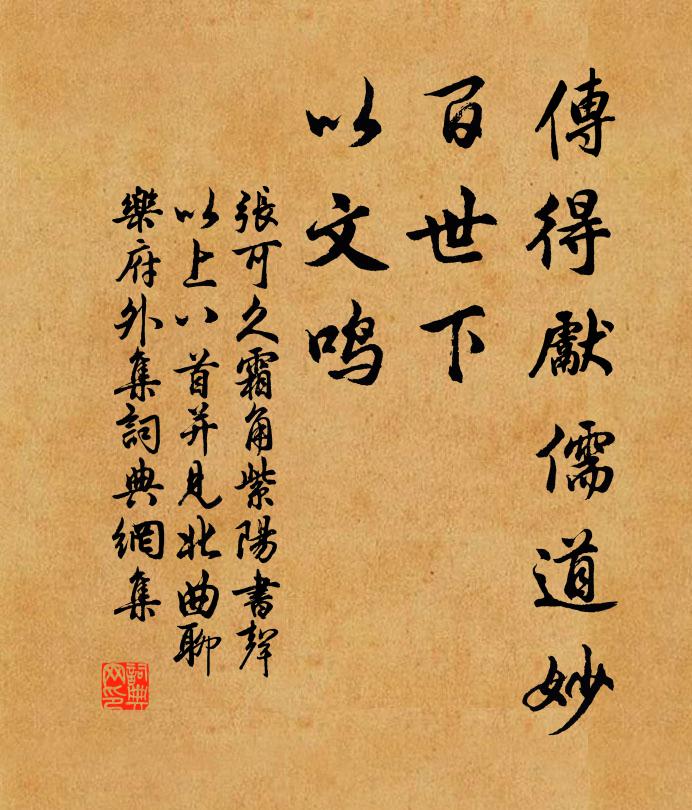 傳得獻儒道妙
百世下
以文鸣
張可久霜角紫陽書聲
以上八首并見北曲聊
樂府外集詞典網集
詞典網印